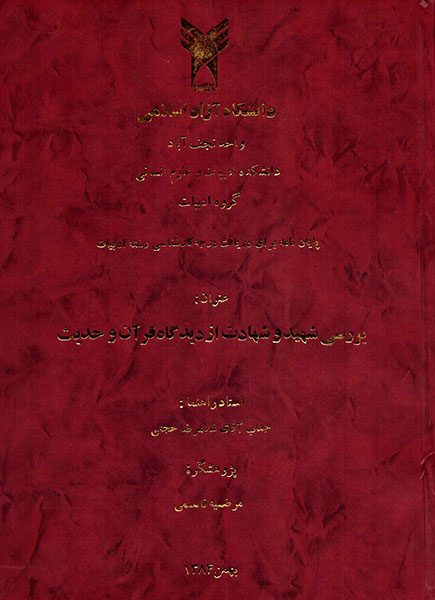 دانشگاه آزاد اسلامی
واحد نجف آباد
دانشکده ادبیات و علوم انسانی
گروه ادبیات
پایان نامه برای دریافت درجه کارشناسی رشته ادبیات
عنوان:
بررسی شهید و شهادت از دیدگاه قرآن و حدیث
استاد راهنما:
جناب آقای غلامرضا حجتی
پژوهشگره
مرضیه قاسمی
بهمن ۱۳۸۶